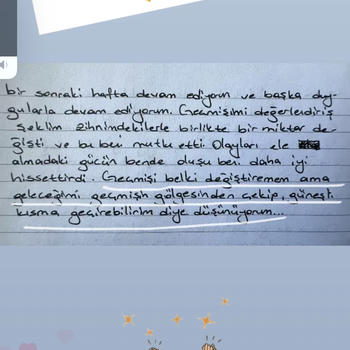 bir sonraki hafta devam ediyorum ve başka duy-
gularla devam ediyorum. Geçmişimi değerlendiriş
şeklim zihnimdekilerle birlikte bir miktar de-
ğişti ve bu beni mutlu etti. Olayları ele
almadaki gücün bende oluşu beni daha iyi
hissettirdi. Geçmişi belki değiştiremem ama
geleceğimi geçmişin gölgesinden çekip, güneşli
kısma geçirebilirim diye düşünüyorum...